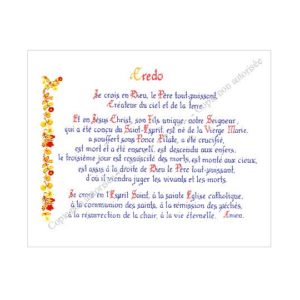 Credo
Je crois en Dieu, le Père tout-puissant,
Créateur du ciel et de la terre.
Et en Jésus Christ, son Fils unique, notre Seigneur,
qui a été conçu du Saint-Esprit, est né de la Vierge Marie,
a souffert sous Ponce Pilate, a été crucifié,
est mort et a été enseveli, est descendu aux enfers,
le troisième jour est ressuscité des morts, est monté aux cieux,
est assis à la droite de Dieu le Père tout-puissant,
d'où il viendra juger les vivants et les morts.
Je crois en l'Esprit Saint, à la sainte Église catholique,
à la communion des saints, à la rémission des péchés,
à la résurrection de la chair, à la vie éternelle. Amen.